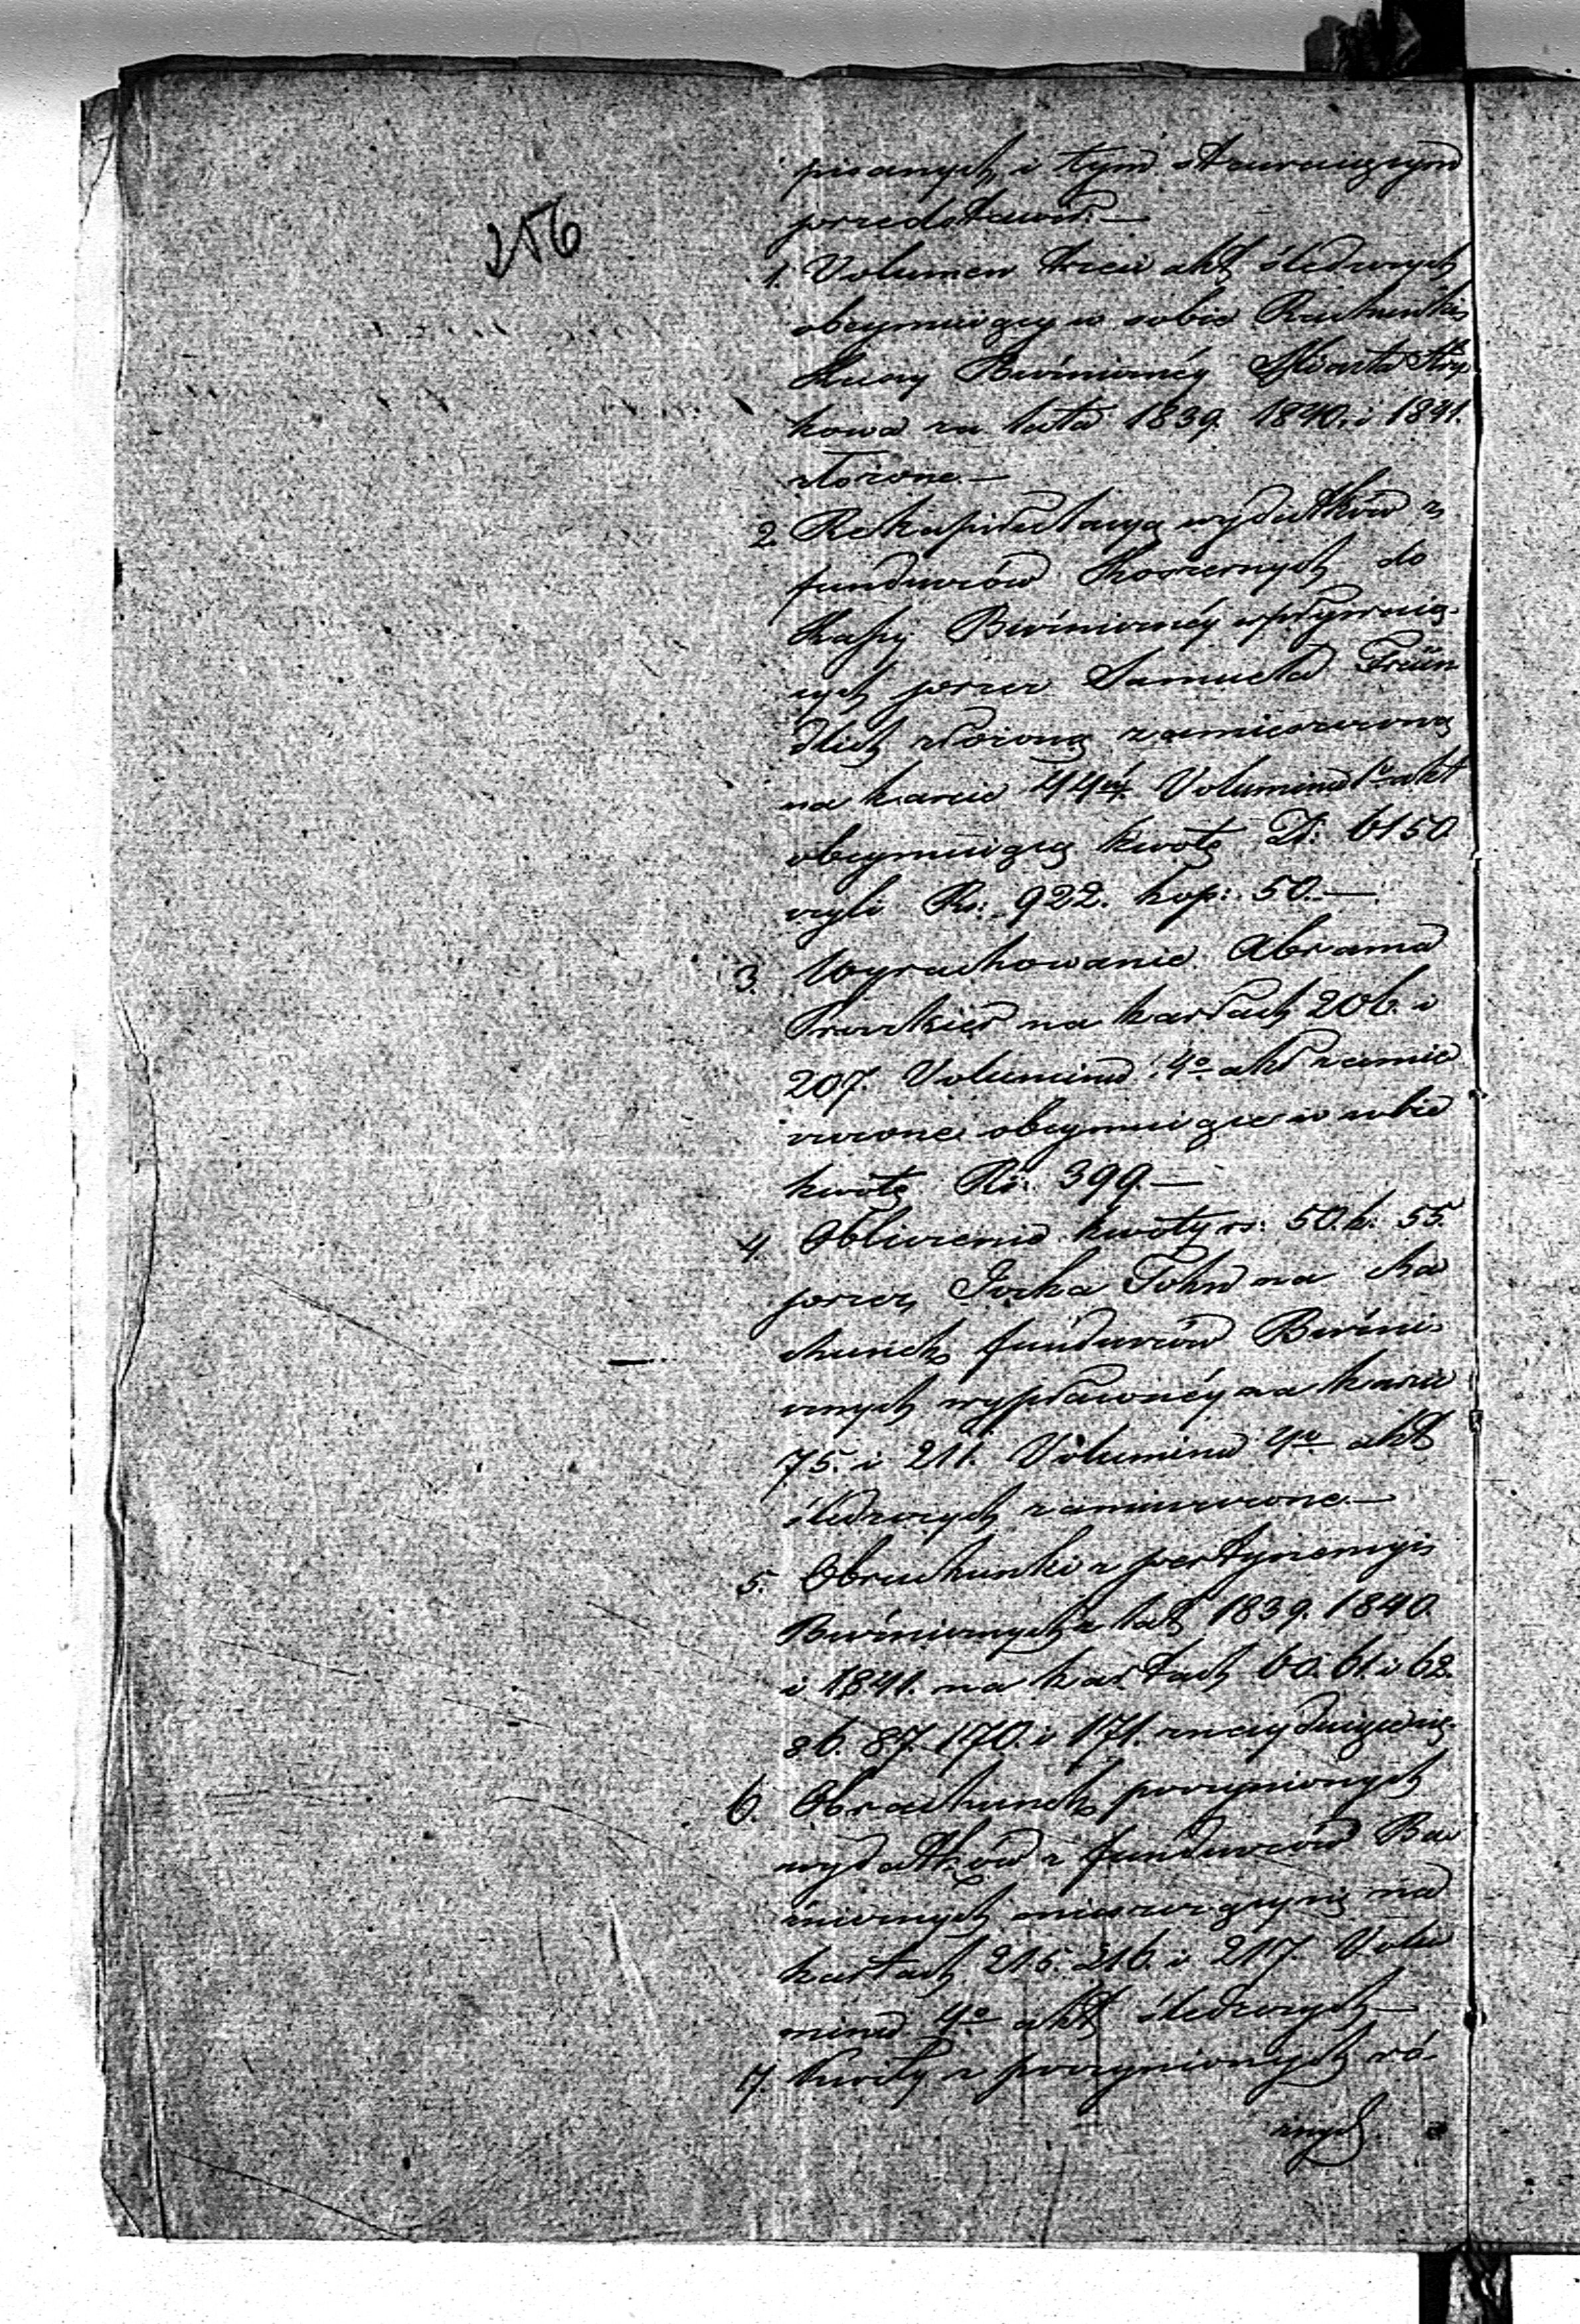 256
pisanych i tym
przedstawił:—
1. Volumen trzeci akt śledczych
obeymuiący w sobie Rachunki
Kassy Bożniczney Miasta Stry
kowa za lata 1839. 1840. i 1841.
złożone.—
2. Rekapitulacyą wydatków z
funduszów Koszernych do
Kassy Bożniczney wpływaią-
cych przez Samuela Freün
dlich złożoną zamieszczoną
na karcie 44éy Volumina 1o akt
obeymuiącą kwotę Zł: 6150
czyli Rs: 922. kop: 50.—
3. Wyrachowanie Abrama
na kartach 206. i
207. Volumina 4o akt zamie
szczone obeymuiące w sobie
kwotę Rs: 399.—
4. Obliczenie kwoty rs: 50. k: 55.
przez Joska Tohn na Ra
chunek funduszów Bożni
cznych wypłaconéy na karcie
75. i 211. Volumina 4o akt
śledczych zamieszczone.—
5. Obrachunki z pertynencyi
Bożnicznych z lat 1839. 1840.
i 1841. na kartach 60. 61. i 62.
86. 87. 170. i 171. znayduiące się.
6. Obrachunek poczynionych
wydatków z funduszów Bo
żnicznych mieszczący się na
kartach 215. 216. i 217. Volu
mina 4o akt śledczych—
7. Kwity z poczynionych ró-
żnych